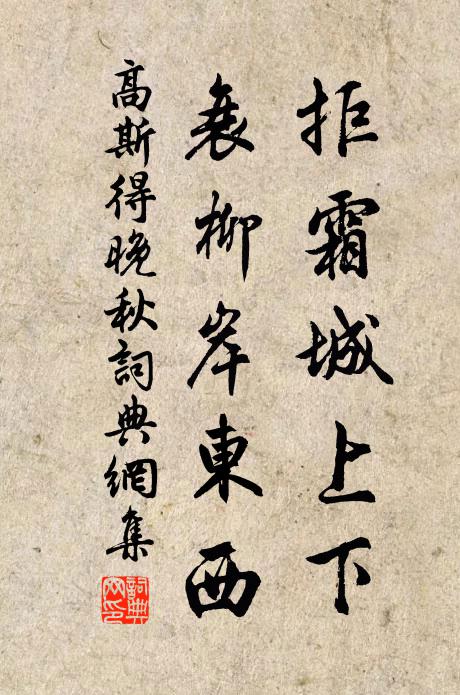 拒霜城上下
衰柳岸東西
高斯得晚秋詞典網集
詞典網印